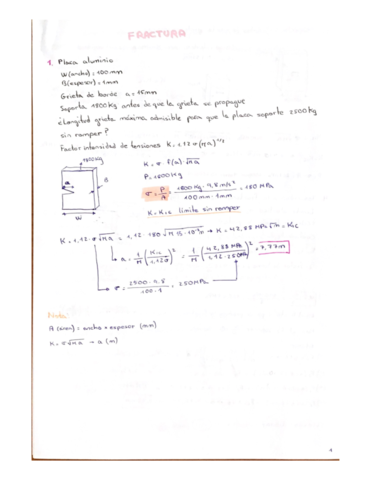 FRACTURA
1. Placa aluminio
W(ancho) = 100 mm
B(espesor) = 1mm
Grieta de borde a = 15mm
Soporta 1800 kg antes de que la grieta se propague
¿Longitud grieta máxima admisible para que la placa soporte 2500 kg
sin romper?
Factor intensidad de tensiones K = 1,12 σ (πa)^1/2
1800 kg
a
B
W
K = σ · f(a) · √πa
P = 1800 kg
σ = P/A = 1800 kg · 9,8 m/s² / 100 mm · 1mm = 180 MPa
K = K1c límite sin romper
K = 1,12 · σ √πa = 1,12 · 180 √π 15 · 10⁻³ m → K = 42,88 MPa √m = K1c
→ a = 1/π (K1c / 1,12 σ)² = 1/π (42,88 MPa / 1,12 · 250 MPa)² = 7,77 m
→ σ = 2500 · 9,8 / 100 · 1 = 250 MPa
Nota:
A (área) = ancho · espesor (mm)
K = σ √πa → a (m)
4